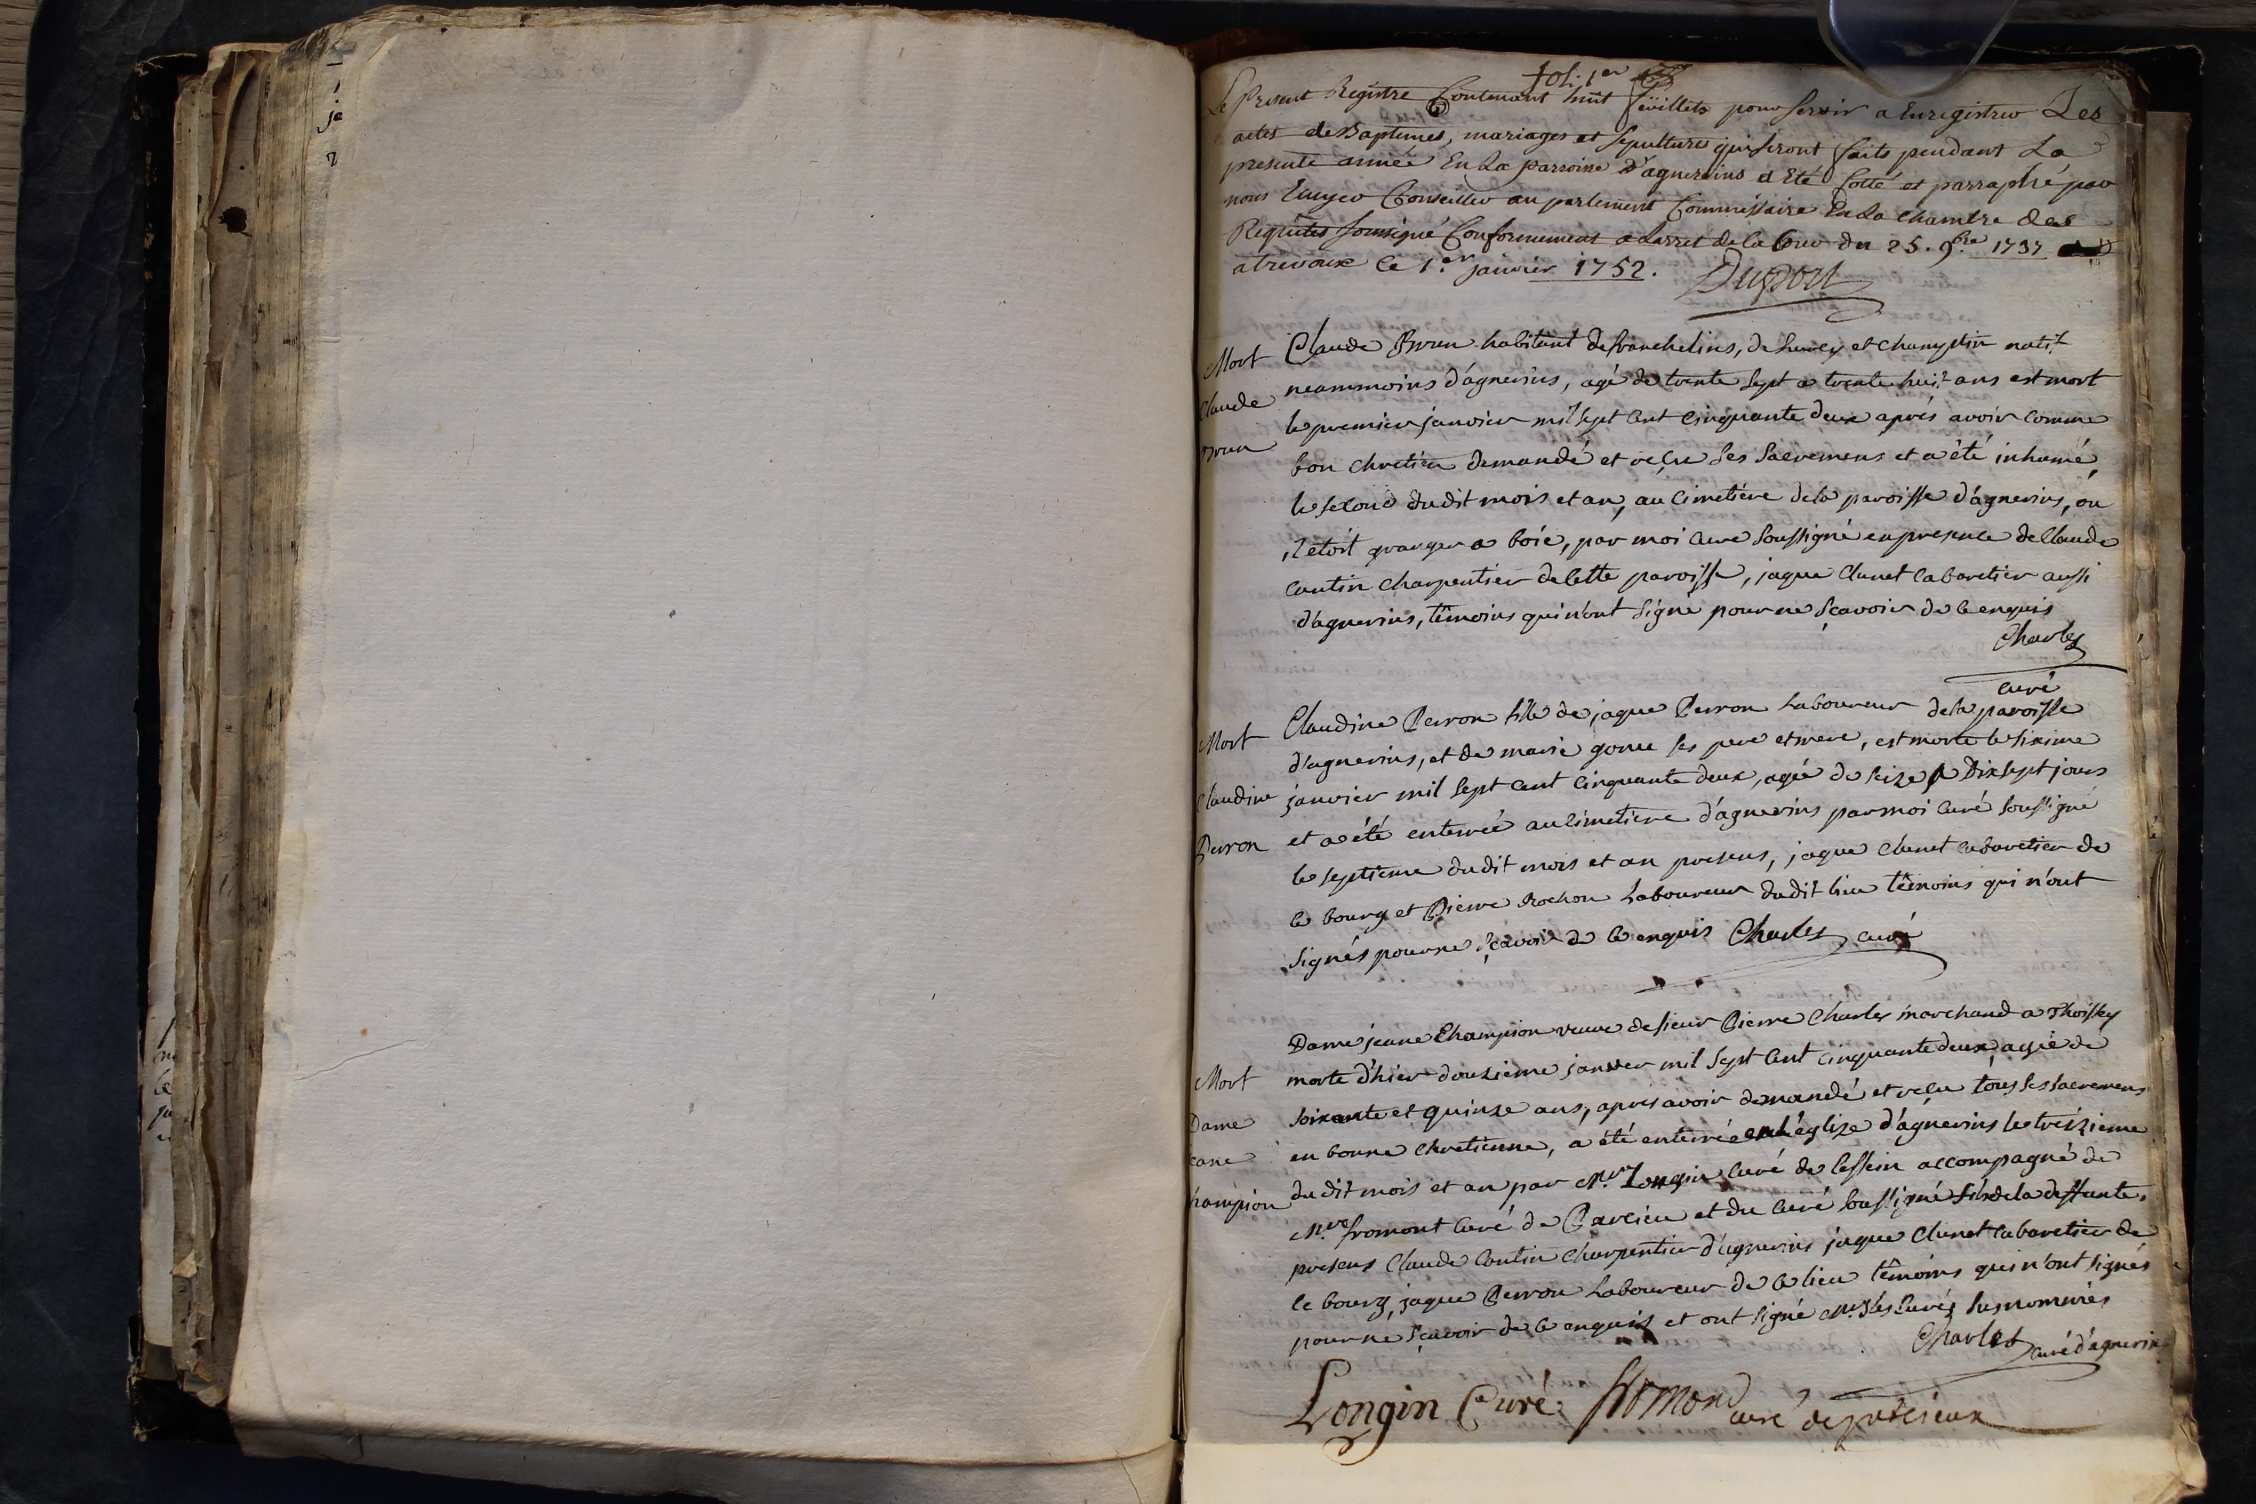 foli. 1er
Le Present Registre Contenant huit feüillets pour servir a Enregistrer Les
actes de Baptemes, mariages et sepultures qui seront faits pendant La
presente année En La parroisse d'agnereins a Eté Cotté et parraphé par
nous Ecuyer Conseiller au parlement Commissaire En La Chambre des
Requêtes soussigné Conformement a Larret de la Cour du 25. 9bre 1737
a trevoux le 1.er janvier 1752. Duport
Mort
Claude
Brun
Claude Brun habitant de franchelins, de et champtin natif
neammoins d'agnerins, agé de trente sept a trente huit ans est mort
le premier janvier mil sept cent cinquante deux aprés avoir comme
bon chretien demandé et reçu les sacremens et a été inhumé,
le second dudit mois et an, au cimetiére de la paroisse d'agnerins, ou
il etoit granger a boie, par moi curé soussigné en presence de Claude
cantin charpentier de cette paroisse, jaque Clunet cabaretier aussi
d'agnerins, têmoins qui n'ont signé pour ne sçavoir de ce enquis
Charles
curé
Mort
Claudine
Perron
Claudine Perron fille de jaque Perron Laboureur de la paroisse
d'agnerins, et de marie gonu ses pere et mere, est morte le sixime
janvier mil sept cent cinquante deux, agée de seize a Dix sept jours
et a été enterrée au cimetiere d'agnerins par moi curé soussigné
le septieme dudit mois et an presens, jaque Clunet cabaretier de
ce bourg et Pierre Rochon Laboureur dudit lieu têmoins qui n'ont
signés pour ne sçavoir de ce enquis Charles curé
Mort
Dame
eane
hampion
Dame jeane Champion veuve de sieur Pierre Charles marchand a Thoissey
morte d'hier douzieme janvier mil sept cent cinquante deux, agée de
soixante et quinze ans, aprés avoir demandé et reçu tous ses sacremens
en bonne chretienne, a été enterrée en l'église d'agnerins le treizieme
du dit mois et an par Mr. Longin curé de Cessein accompagné de
Mre. fromont curé de Parcieu et du curé soussigné fils de la deffunte,
presens Claude Cantin charpentier d'agnerins jaque Clunet cabaretier de
ce bourg, jaque Perron Laboureur de ce lieu têmoins qui n'ont signés
pour ne sçavoir de ce enquis et ont signé Mrs. les curés susnommés
Charles curé d'agnerins
Longin Curé fromond curé de parcieux